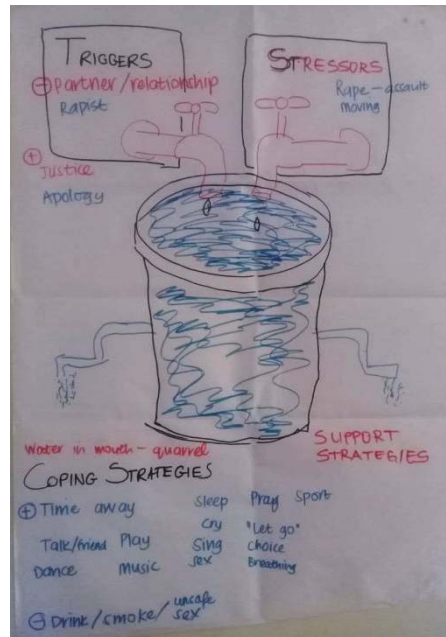 TRIGGERS
⊖ Partner/relationship
Rapist
⊕ Justice
Apology
STRESSORS
Rape – assault
moving
Water in mouth – quarrel
SUPPORT
STRATEGIES
COPING STRATEGIES
⊕ Time away sleep Pray Sport
cry "Let go"
Talk/friend Play Sing choice
Dance music sex Breathing
⊖ Drink/smoke/unsafe sex